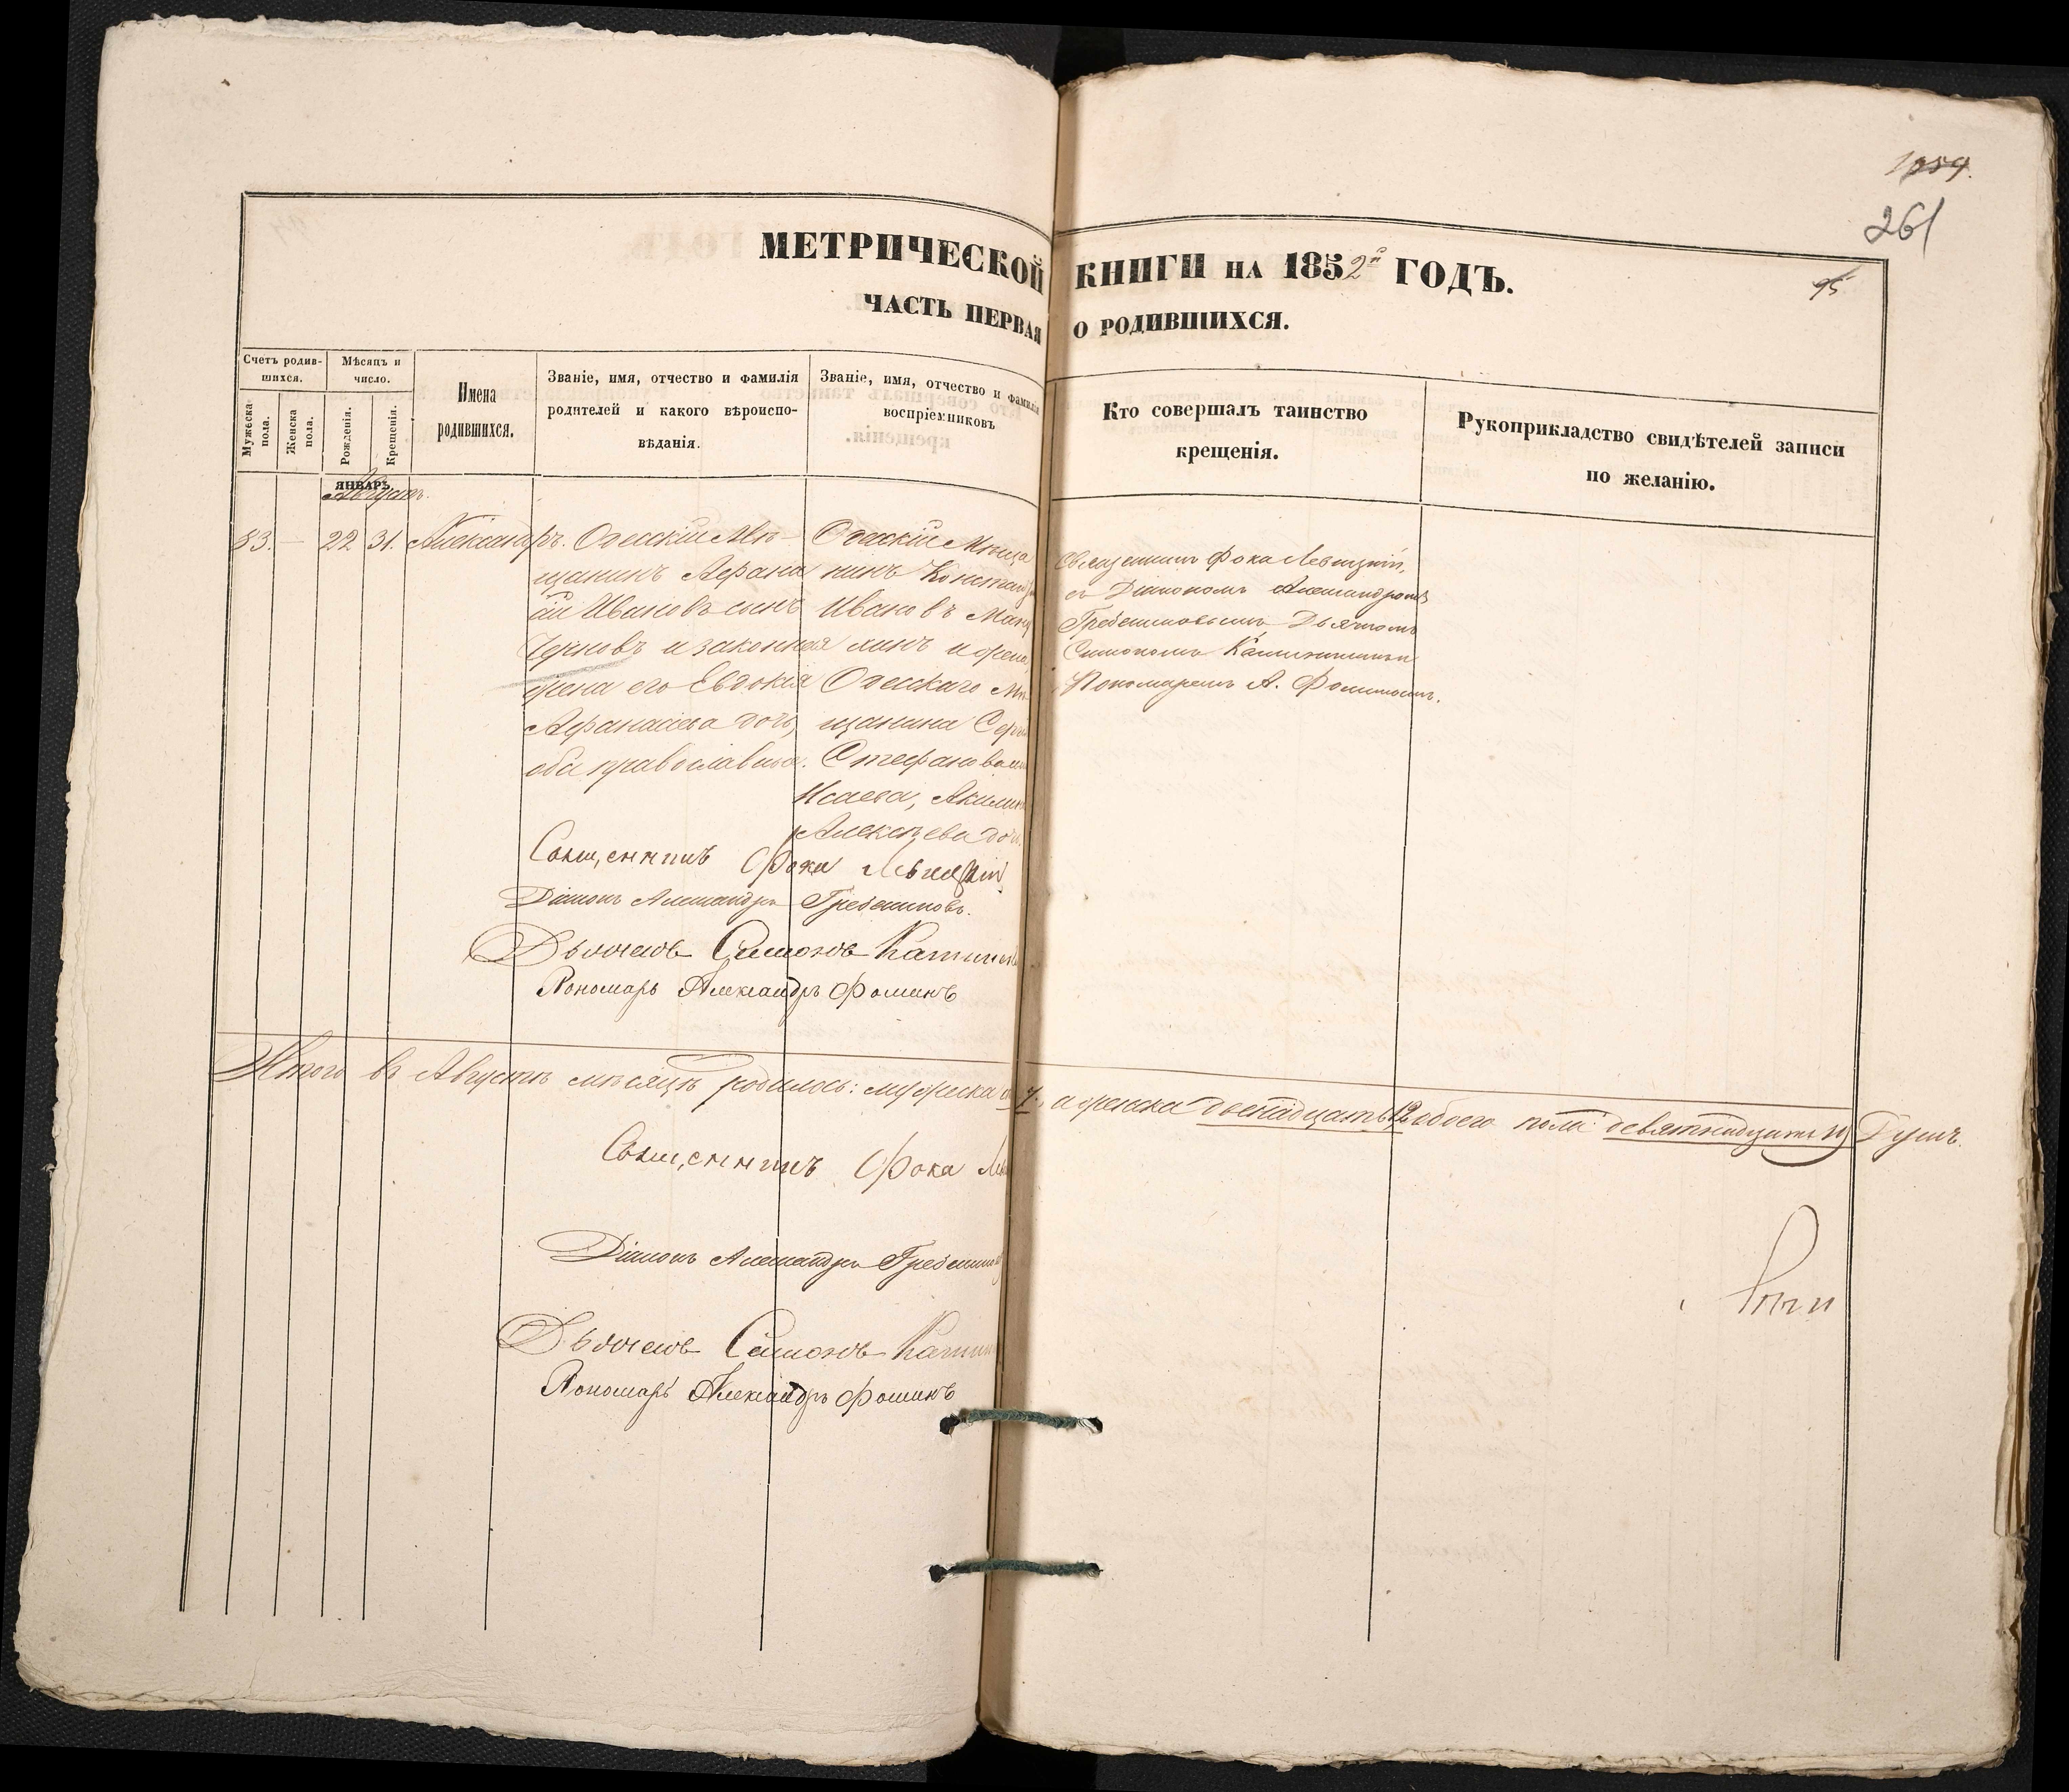 1254.
261
95
МЕТРИЧЕСКОЙ КНИГИ НА 1852й ГОДЪ.
ЧАСТЬ ПЕРВАЯ О РОДИВШИХСЯ.
Счетъ родив-
шихся.
Мужеска пола.
Женска пола.
Мѣсяцъ и
число.
Рожденія.
Крещенія.
Имена
родившихся.
Званіе, имя, отчество и фамилія
родителей и какого вѣроиспо-
вѣданія.
Званіе, имя, отчество и фамилія
воспріемниковъ
Кто совершалъ таинство
крещенія.
Рукоприкладство свидѣтелей записи
по желанію.
ЯНВАРЬ
Августъ.
83. — 22 31. Александръ.
Одесскій Мѣ-
щанинъ Афана
сій Ивановъ сынъ
Черновъ и законная
жена его Евдокія
Афанасіева дочь,
оба православные.
Одесскій Мѣща
нинъ Констан
Ивановъ
и жена
Одесскаго Мѣ
щанина Сер
Стефанова
Исаева, Акилин
Алексѣева доч
Священникъ Фока Левицкій,
съ Діакономъ Александромъ
Гребенниковымъ, Дьячкомъ
Симономъ
Пономаремъ А. Фоминымъ.
Священникъ Фока Левицкій
Діаконъ Александръ Гребенниковъ.
Дьячокъ Симонъ
Пономарь Александръ Фоминъ
Итого въ Августѣ мѣсяцѣ родилось: мужеска 7. а женска двенадцать 12 обоего пола девятнадцать 19 Душъ.
Священникъ Фока Ле
Діаконъ Александръ Гребеннико
Дьячокъ Симонъ
Пономарь Александръ Фоминъ